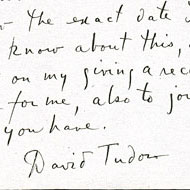 - The exact date
know about this,
on my giving a rec
for me, also to jo
you have.
David Tudor